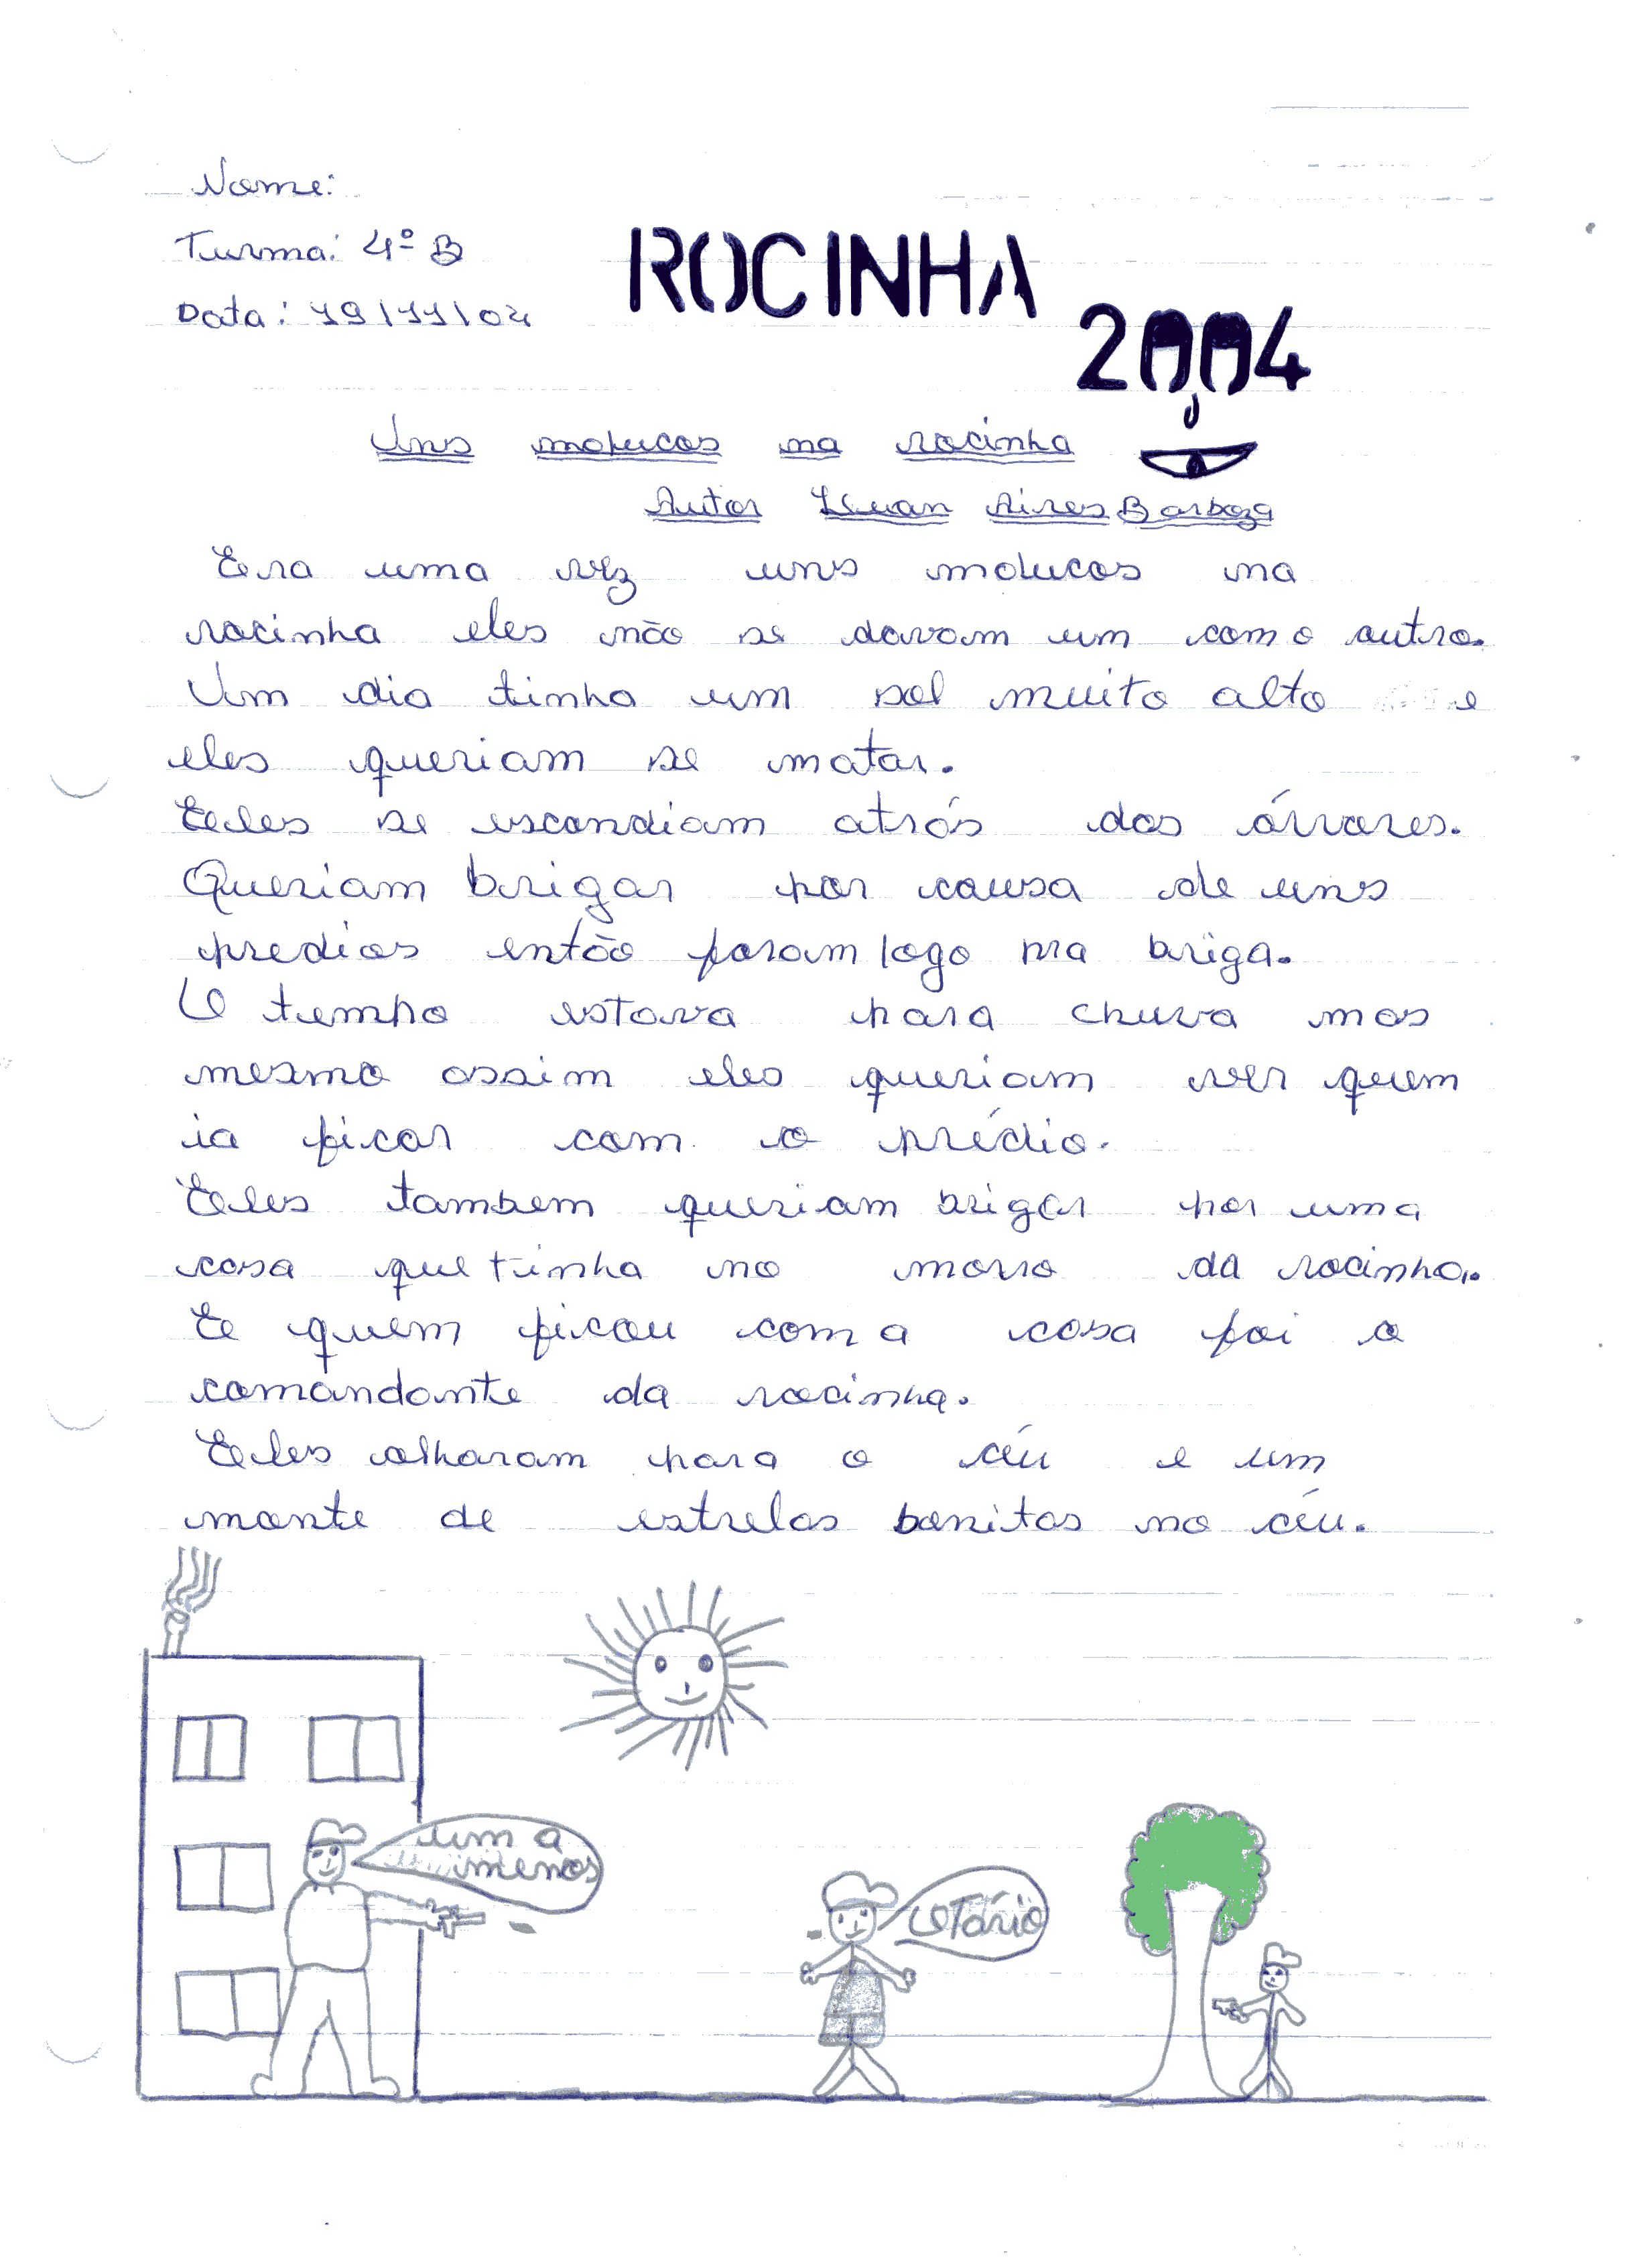 Nome:
Turma: 4º B
Data: 19/11/04
ROCINHA
2004
Uns molucos na rocinha
Autor Lluan Aires Barboza
Era uma vez uns molucos na
rocinha eles não se davam um com o outro.
Um dia tinha um sol muito alto e
eles queriam se matar.
Eeles se escondiam atrás das árvares.
Queriam brigar por causa de uns
predios então foram logo na briga.
O tempo estava para chuva mas
mesmo assim eles queriam ver quem
ia ficar com o prédio.
Eles tambem queriam brigar por uma
casa que tinha no morro da rocinha.
E quem ficou com a casa foi o
comandante da rocinha.
Eles olharam para o céu e um
monte de estrelas bonitas no céu.
um a
menos
Otário